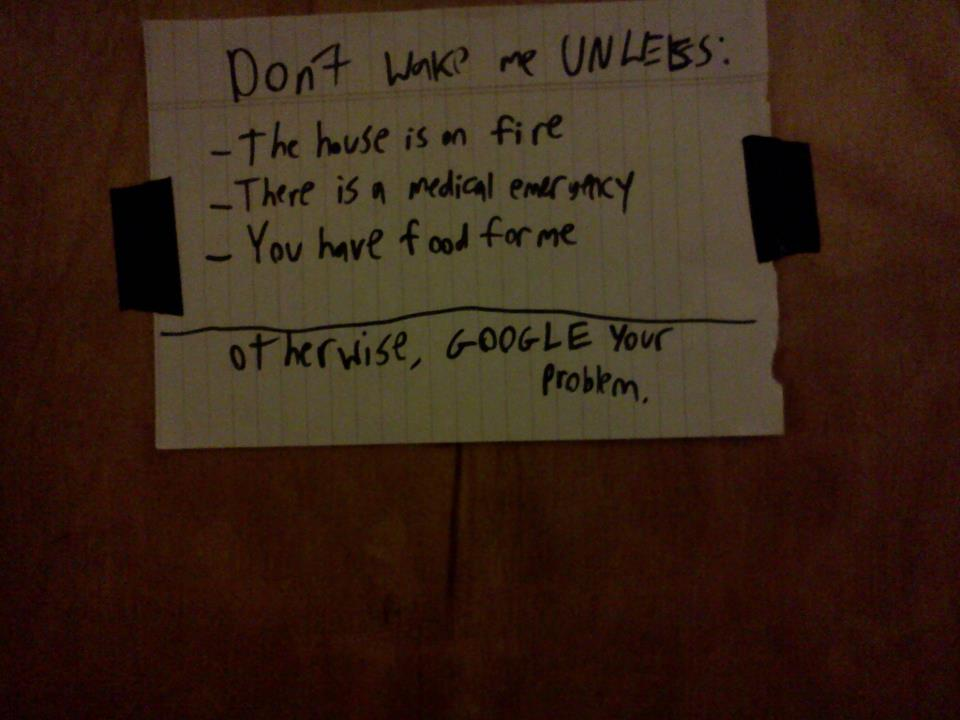 Don't wake me UNLESS:
- The house is on fire
- There is a medical emergency
- You have food for me
otherwise, GOOGLE Your
Problem.